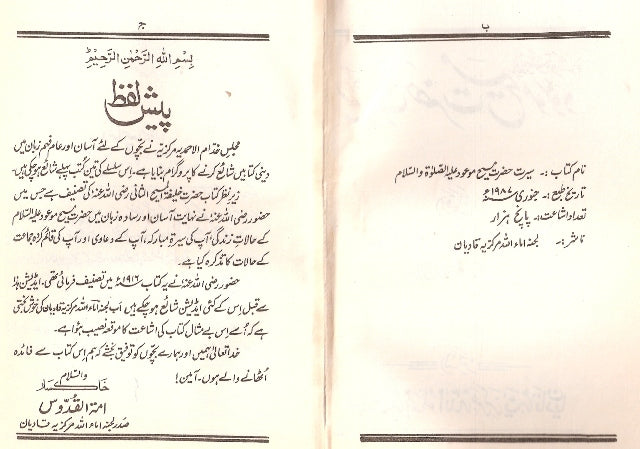 ب
نام کتاب :۔ سیرت حضرت مسیح موعود علیہ الصلوٰۃ والسلام
تاریخ طبع :۔ جنوری ۱۹۸۷ء
تعداد اشاعت :۔ پانچ ہزار
ناشر :۔ لجنہ اماء اللہ مرکزیہ قادیان
ج
بِسْمِ اللّٰہِ الرَّحْمٰنِ الرَّحِیْمِ
پیش لفظ
مجلس خدّام الاحمدیہ مرکزیہ نے بچّوں کے لئے آسان اور عام فہم زبان میں
دینی کتابیں شائع کرنے کا پروگرام بنایا ہے۔ اس سلسلے کی تین کتب پہلے شائع ہو چکی ہیں۔
زیر نظر کتاب حضرت خلیفۃ المسیح الثانی رضی اللہ عنہ کی تصنیف ہے جس میں
حضور رضی اللہ عنہ نے نہایت آسان اور سادہ زبان میں حضرت مسیح موعود علیہ السلام
کے حالاتِ زندگی، آپ کی سیرۃ مبارکہ، آپ کے دعاوی اور آپ کی قائم کردہ جماعت
کے حالات کا تذکرہ کیا ہے۔
حضور رضی اللہ عنہ نے یہ کتاب ۱۹۱۶ء میں تصنیف فرمائی تھی۔ ایڈیشن ہٰذا
سے قبل اِس کے کئی ایڈیشن شائع ہو چکے ہیں اب لجنہ اماء اللہ مرکزیہ قادیان کی خوش بختی
ہے کہ اُسے اِس بے مثال کتاب کی اشاعت کا موقعہ نصیب ہوا ہے۔
خدا تعالیٰ ہمیں اور ہمارے بچّوں کو توفیق بخشے کہ ہم اِس کتاب سے فائدہ
اُٹھانے والے ہوں۔ آمین!
والسّلام
خاکسار
امۃ القدّوس
صدر لجنہ اماء اللہ مرکزیہ قادیان